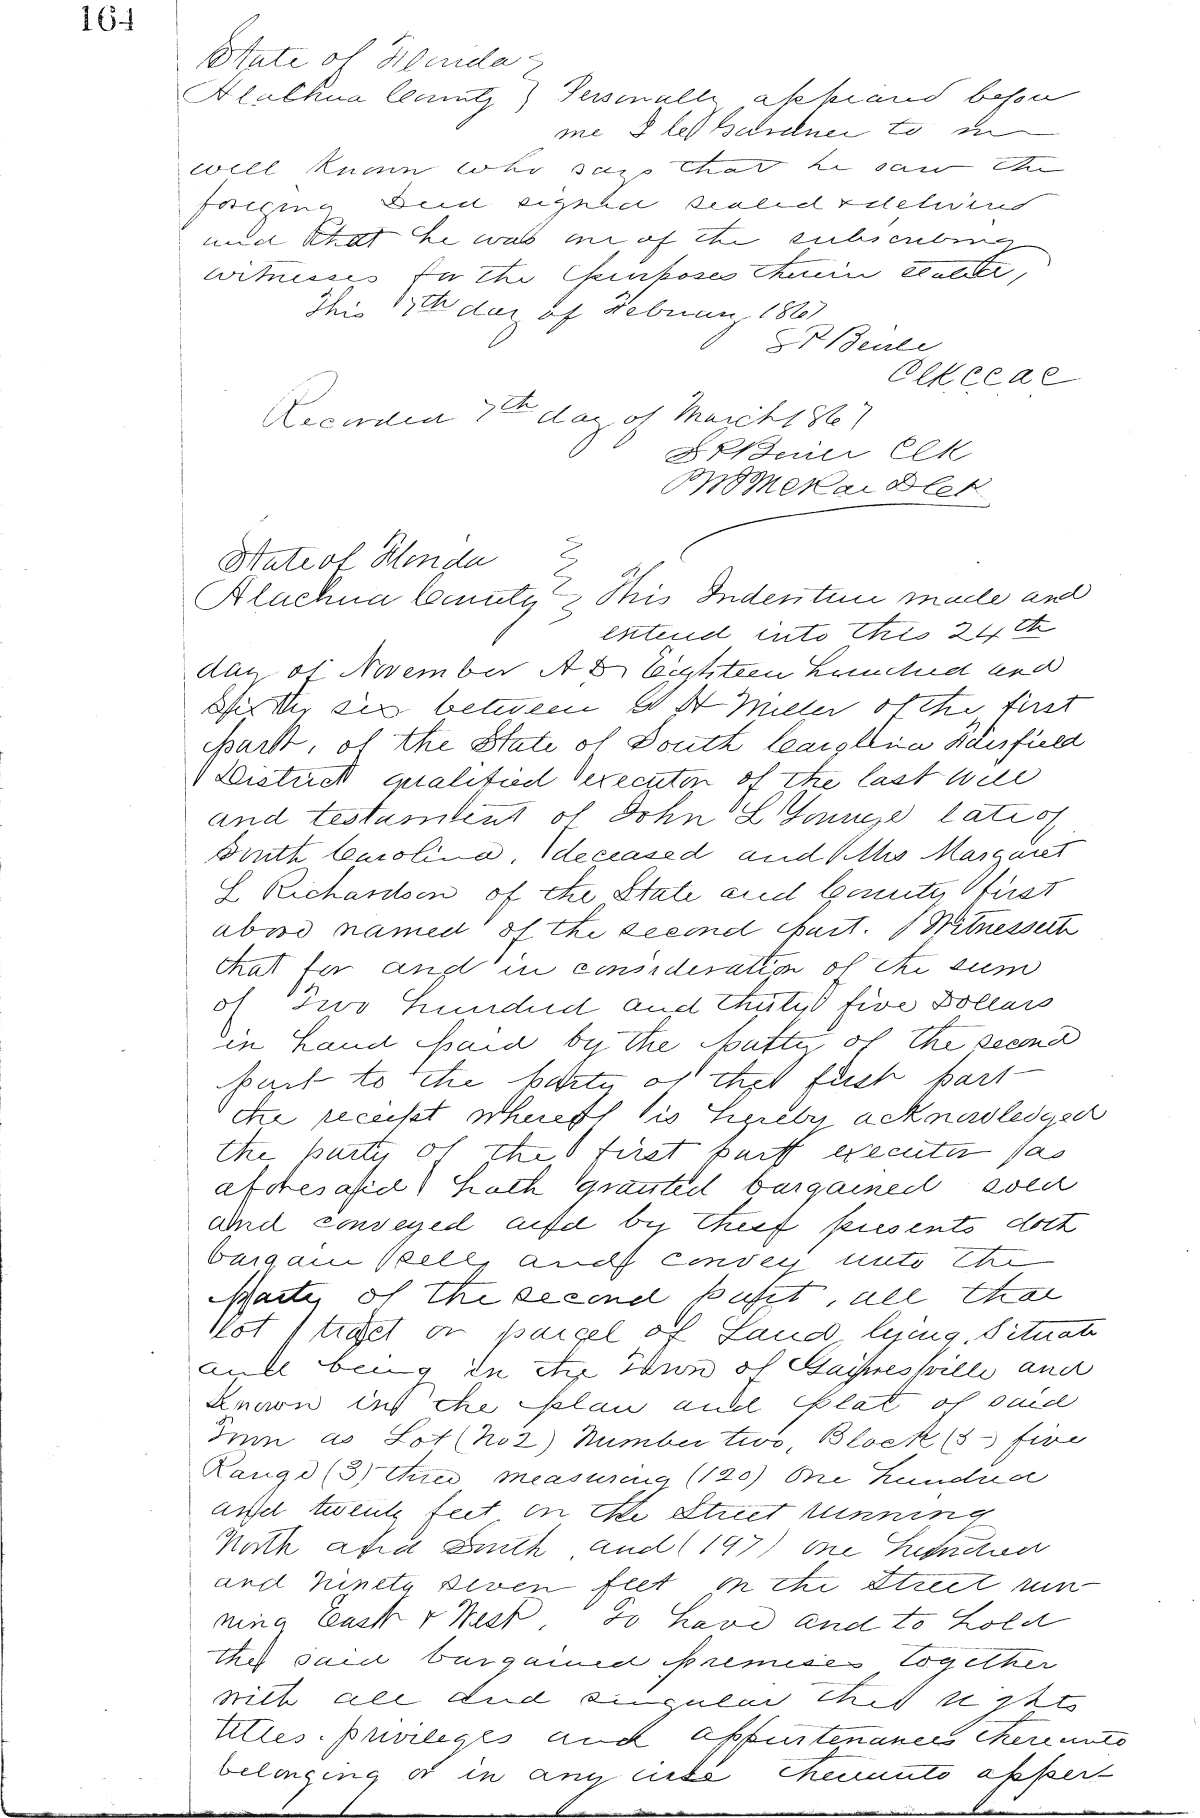 164
State of Florida
Alachua County } Personally appeared before
me I Gardner to me
well known who says that he saw the
foreging Deed signed sealed & delivered
and that he was one of the subscribing
witnesses for the purposes therein stated,
This 7th day of February 1867
Clk CCAC
Recorded 7th day of March 1867
Clk
State of Florida
Alachua County } This Indenture made and
enterd into this 24th
day of November A D Eighteen hundred and
Sixty six between G H Miller of the first
part, of the State of South Carolina
District qualified executor of the last will
and testament of John L Younge late of
South Carolina, deceased and Mrs Margaret
L Richardson of the State and County first
above named of the second part. Witnesseth
that for and in consideration of the sum
of Two hundred and thirty five Dollars
in hand paid by the party of the second
part to the party of the first part
the receipt whereof is hereby acknowledged
the party of the first part executor as
aforesaid hath granted bargained sold
and conveyed and by these presents doth
bargain sell and convey unto the
Party of the second part, all that
lot tract or parcel of Land lying, Situate
and being in the Town of Gainesville and
known in the plan and plat of said
Town as Lot (No 2) Number two, Block (5) five
Range (3) three measuring (120) One hundred
and twenty feet on the Street running
North and South and (197) one hundred
and ninety seven feet on the Street run-
ning East & West. To have and to hold
the said bargained premises together
with all and singular the rights
titles. privileges and appurtenances thereunto
belonging or in any wise thereunto apper-